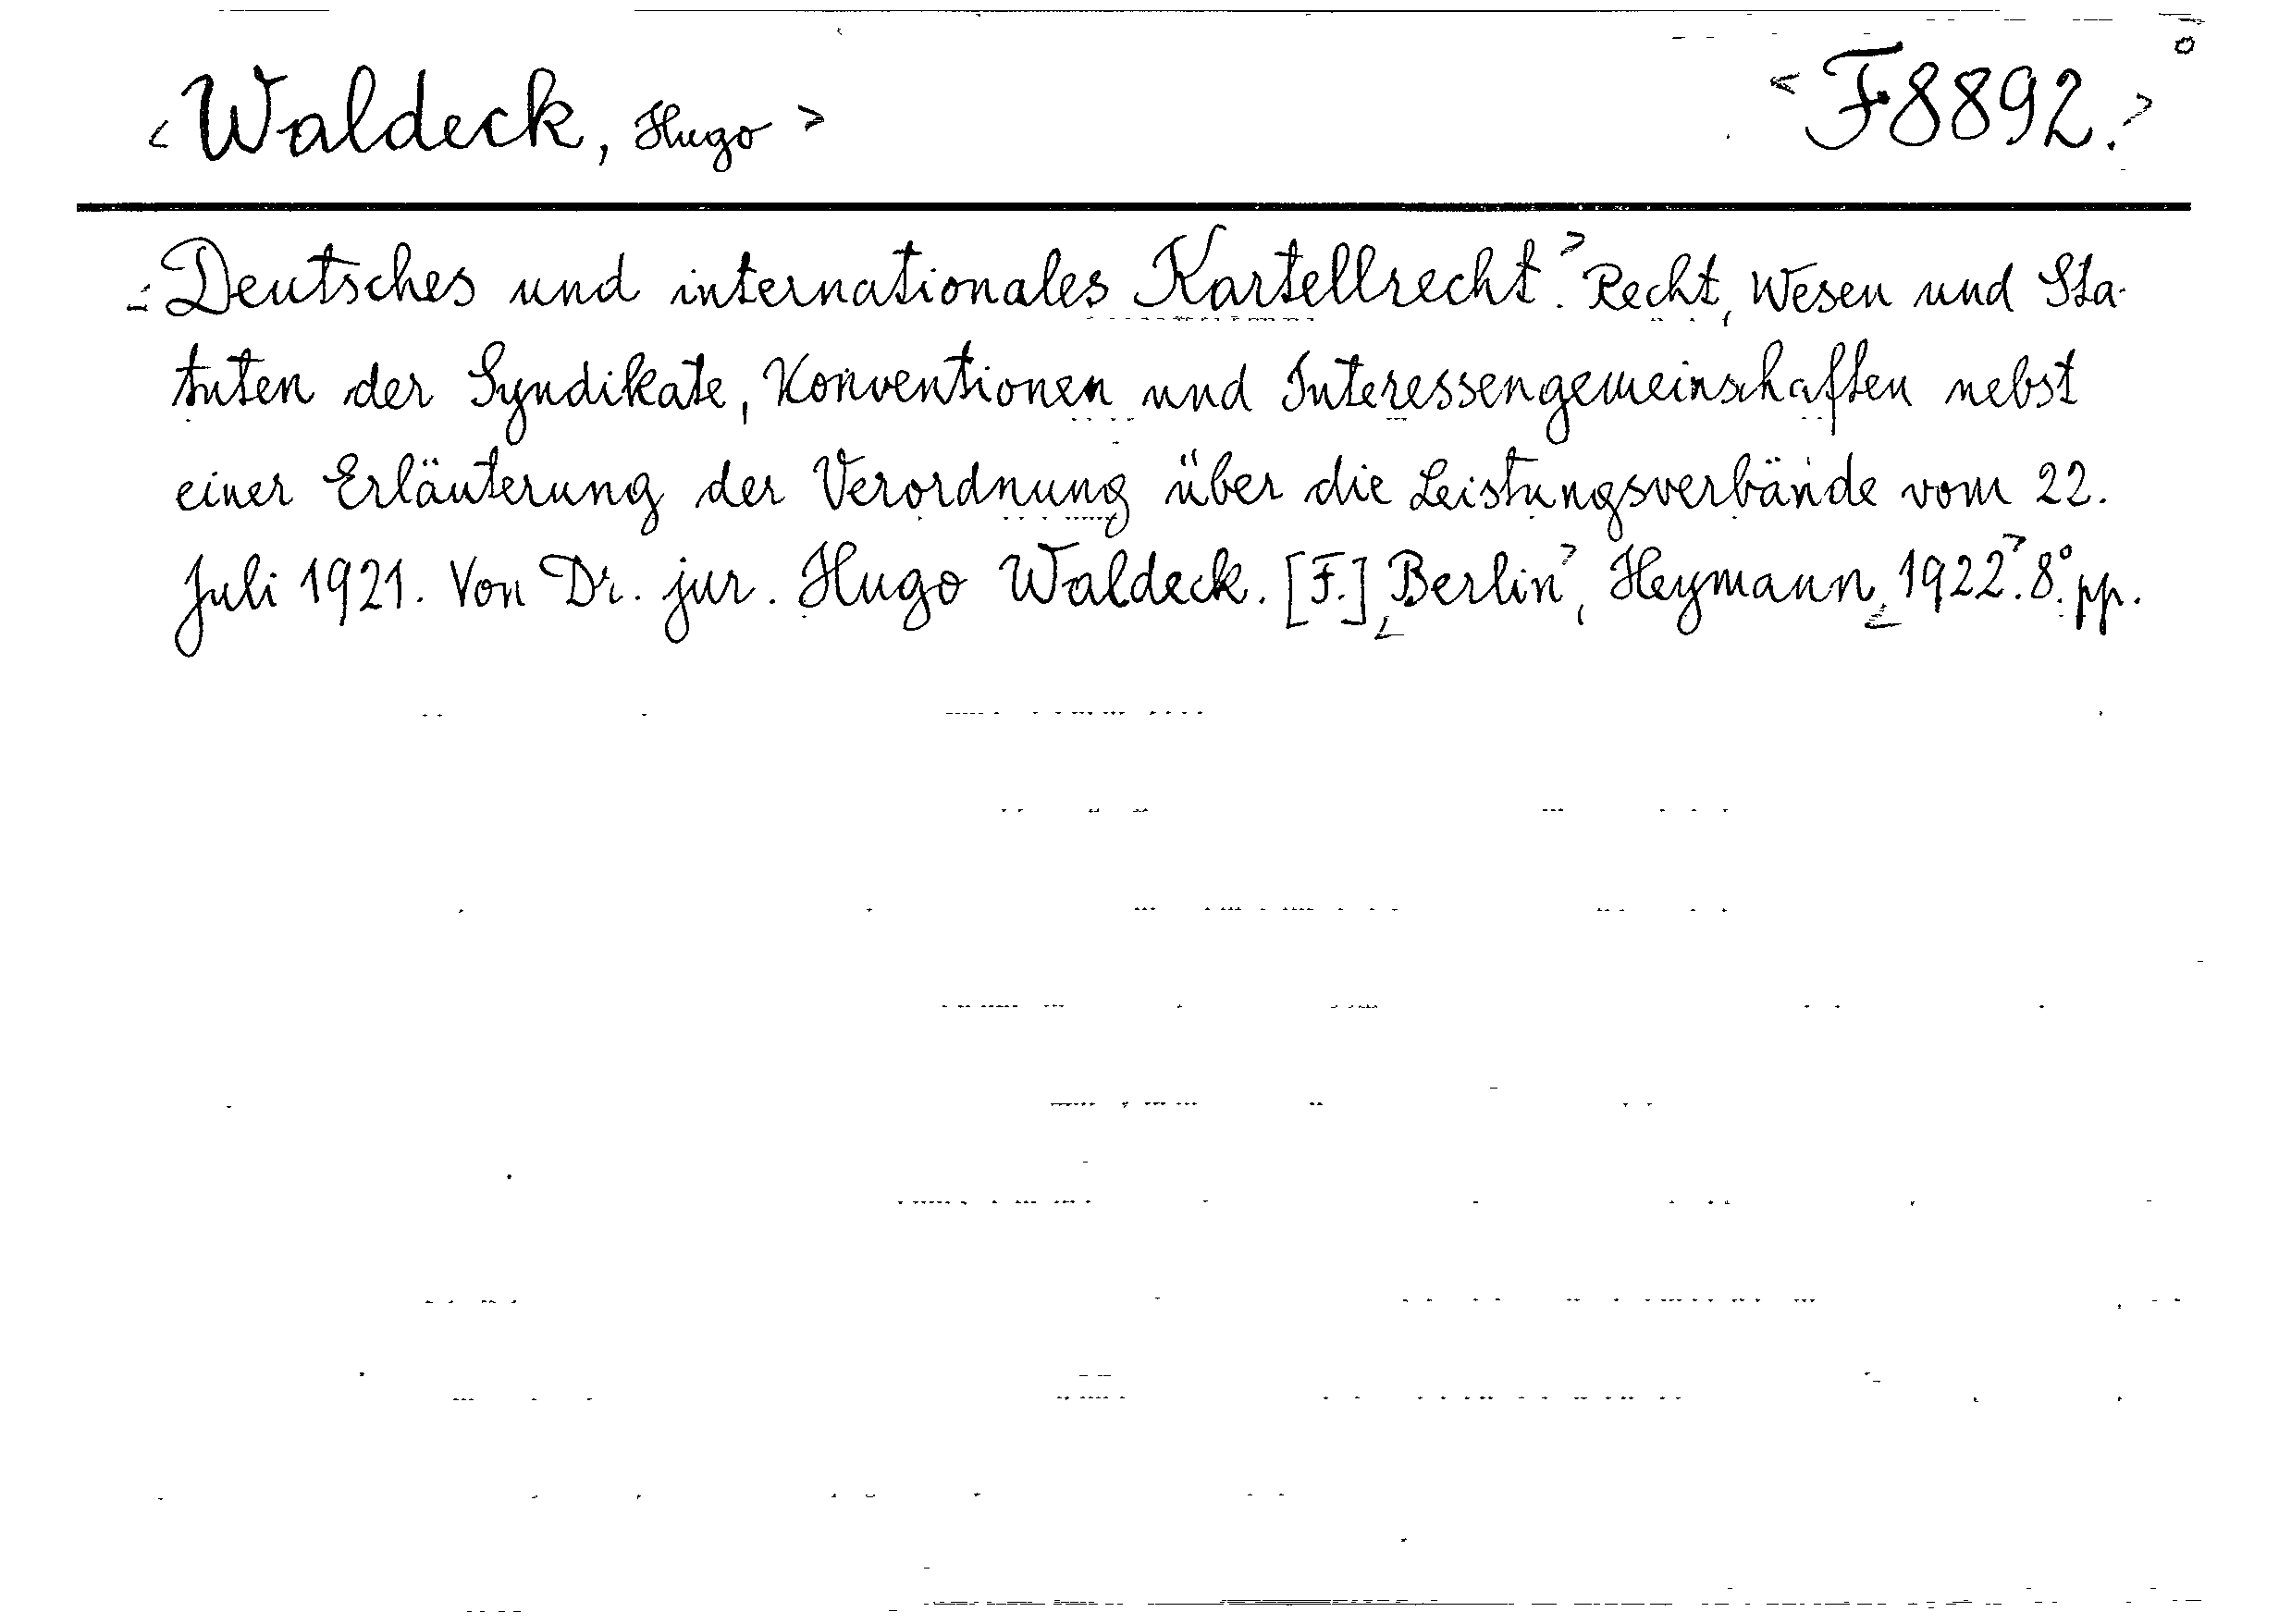 <Waldeck, Hugo> <F8892.>
<Deutsches und internationales Kartellrecht.> Recht, Wesen und Sta-
tuten der Syndikate, Konventionen und Interessengemeinschaften nebst
einer Erläuterung der Verordnung über die Leistungsverbände vom 22.
Juli 1921. Von Dr. jur. Hugo Waldeck. [F.] <Berlin>, Heymann, <1922>. 8°. pp.